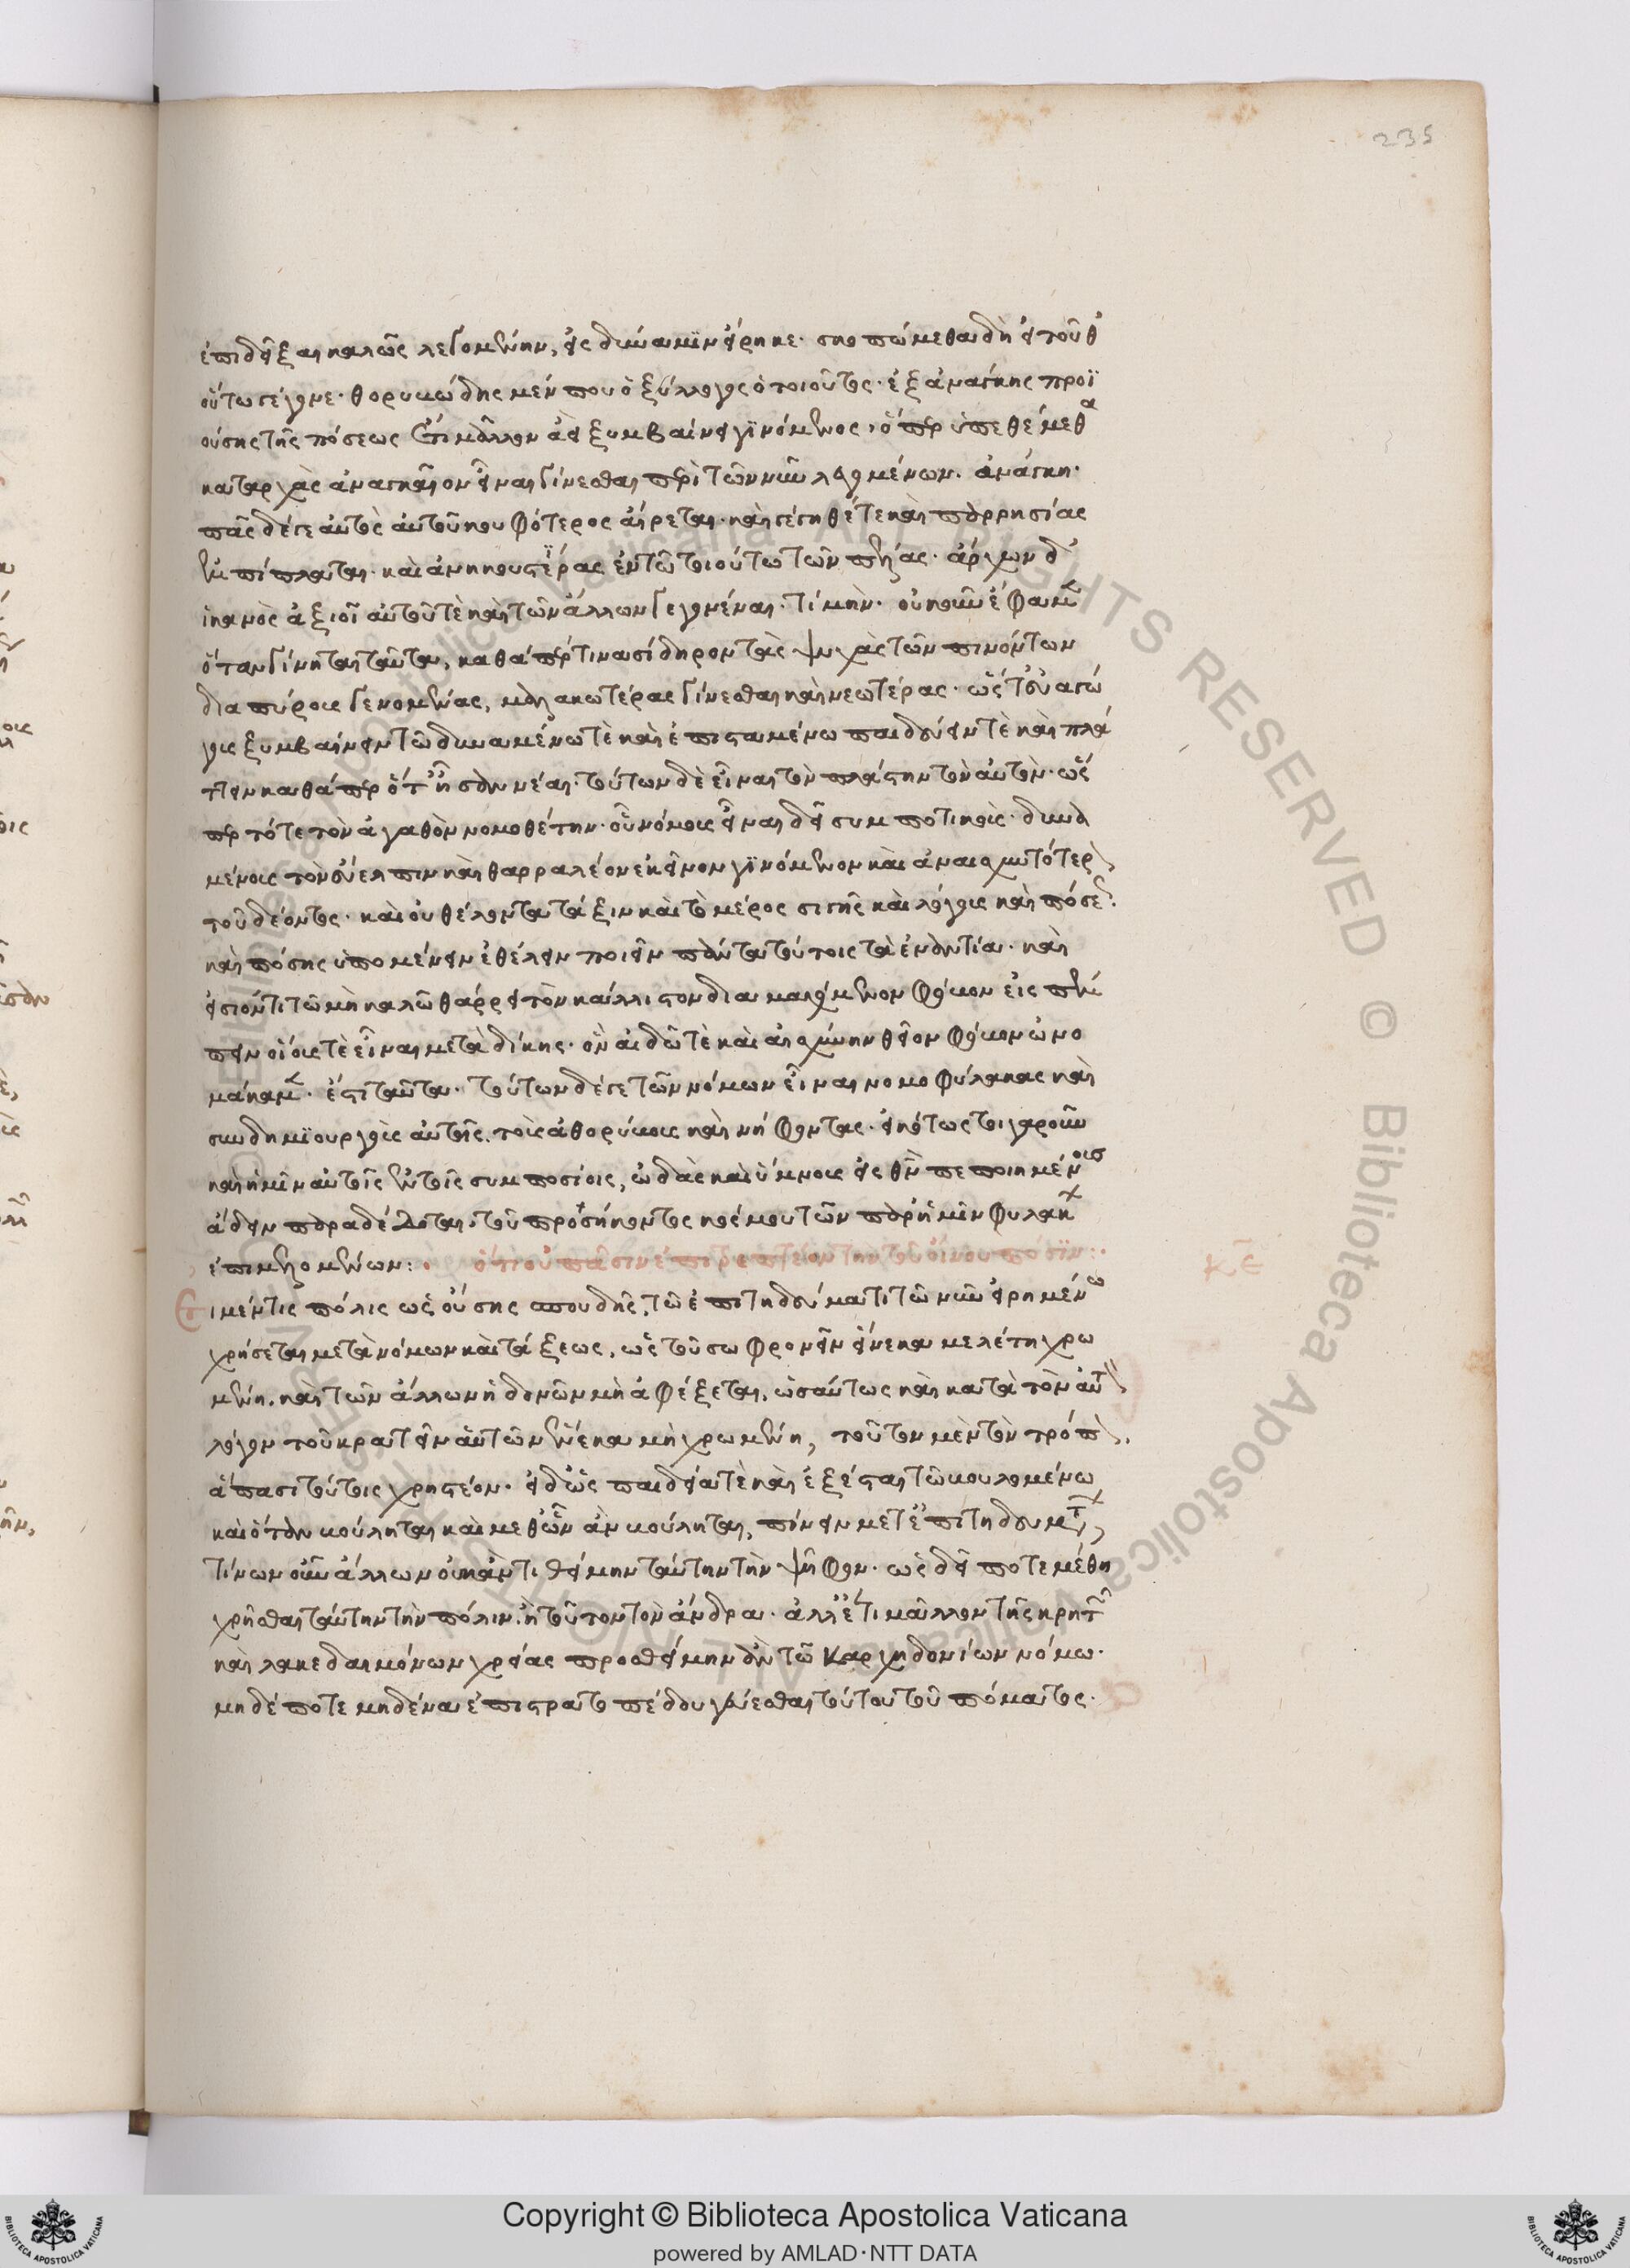 ἐπιδεῖξαι καλῶς λεγομένην, εἰς δύναμιν εἴρηκε· σκοπώμεθα δὴ εἰ τοῦθ'
οὕτω γέγονε· θορυβώδης μέν που ὁ ξύλλογος ὁ τοιοῦτος· ἐξ ἀνάγκης προϊ
ούσης τῆς πόσεως ἐπὶ μᾶλλον ἀεὶ ξυμβαίνει γινόμενος· ὅπερ ὑπεθέμεθα
κατ αρχὰς ἀναγκαῖον εἶναι γίνεσθαι περὶ τῶν νῦν λεγομένων. ἀνάγκη·
πᾶς δέ γε αὐτὸς αὑτοῦ κουφότερος αἴρεται· καὶ γέγηθέ τε καὶ παρρησίας
ἐμπίπλαται· καὶ ἀνηκουστίας ἐν τῶ τοιούτω τῶν πέλας· ἄρχων δ'
ἱκανὸς ἀξιοῖ αὑτοῦ τὲ καὶ τῶν ἄλλων γεγονέναι· τί μήν· οὐκοῦν ἔφαμεν
ὅταν γίνηται ταῦτα, καθάπερ τινα σίδηρον τὰς ψυχὰς τῶν πινόντων
διαπύρους γενομένας, μαλθακωτέρας γίνεσθαι καὶ νεωτέρας· ὥστ' εὐαγώ
γους ξυμβαίνειν τῶ δυναμένω τὲ καὶ ἐπισταμένω παιδεύειν τὲ καὶ πλά
ττειν καθάπερ ὅτ' ἦσαν νέαι· τούτων δὲ εἶναι τὸν πλάστην τὸν αὐτὸν· ὥσ
περ τότε τὸν ἀγαθὸν νομοθέτην· οὗ νόμους εἶναι δεῖ συμποτικοὺς· δυνα
μένους τὸν εὔελπιν καὶ θαρραλέον ἐκεῖνον γινόμενον καὶ ἀναισχυντότερον
τοῦ δέοντος· καὶ οὐ θέλοντα τάξιν καὶ τὸ μέρος σιγῆς καὶ λόγους καὶ πόσεως
καὶ πόσης ὑπομένειν ἐθέλειν ποιεῖν πάντα τούτοις τὰ ἐναντία· καὶ
εἰσιόντι τῶ μὴ καλῶ θάρρει τὸν κάλλιστον διαμαχόμενον φόβον εἰς πέμ
πειν οἵους τὲ εἶναι μετὰ δίκης· ὃν αἰδῶ τὲ καὶ αἰσχύνην θεῖον φόβον ὠνο
μάκαμεν. ἔστι ταῦτα· τούτων δέ γε τῶν νόμων εἶναι νομοφύλακας καὶ
συνδημιουργοὺς αὐτοῖς, τοὺς ἀθορύβους καὶ νήφοντας· εἰκότως τοιγαροῦν
καὶ ἡμῖν αὐτοῖς ἐν τοῖς συμποσίοις, ὠδὰς καὶ ὕμνους εἰς θεὸν πεποιημένους
ἄδειν παραδέδοται· τοῦ προσήκοντος κόσμου τῶν παρ' ἡμῖν φυλάκων
ἐπιμελομένων:· ὅτι οὐ πᾶσιν ἐπιτρεπτέον τὴν τοῦ οἴνου πόσιν:· κ̅ε̅
Ει μέν τις πόλις ὡς οὔσης σπουδῆς, τῶ ἐπιτηδεύματι τῶ νῦν εἰρημένω
χρήσεται μετὰ νόμων καὶ τάξεως, ὡς τοῦ σωφρονεῖν ἕνεκα μελέτη χρω
μένη. καὶ τῶν ἄλλων ἡδονῶν μὴ ἀφέξεται, ὡσαύτως καὶ κατὰ τὸν αὐτὸν
λόγον τοῦ κρατεῖν αὐτῶν ἕνεκα μὴ χρωμένη, τοῦτον μὲν τὸν τρόπον,
ἅπασι τούτοις χρηστέον· εἰ δ' ὡς παιδιᾶ τὲ καὶ ἐξέσται τῶ βουλομένω
καὶ ὅταν βούληται καὶ μεθ' ὧν ἂν βούληται, πίνειν μετ' ἐπιτηδευμάτων,
τίνων οὖν ἄλλων οὐκ ἂν τιθείμην ταύτην τὴν ψῆφον· ὡς δεῖ ποτε μέθη
χρῆσθαι ταύτην τὴν πόλιν. ἢ τοῦτον τὸν ἄνδρα· ἀλλ' ἔτι μᾶλλον τῆς κρητῶν
καὶ λακεδαιμόνων χρείας προσθείμην ἂν τῶ καρχηδονίων νόμω·
μηδέποτε μηδένα ἐπι στρατοπέδου γεύεσθαι τούτου τοῦ πόματος·
235